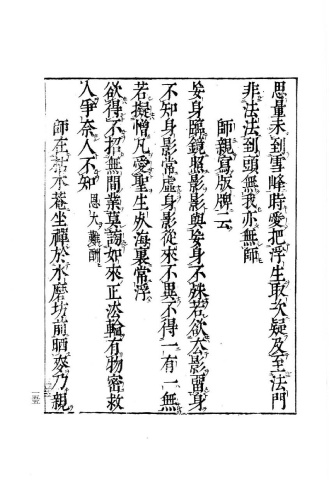 思量未到雪峰時愛把浮生取次疑及至法門
非法法到頭無我亦無師
師親寫版牌云
妄身臨鏡照影影與妄身不殊若欲去影留身
不知身影常虛身影從來不異不得一有一無
若擬憎凡愛聖生死海裏常浮
欲得不招無間業莫謗如來正法輪有物密救
人爭奈人不知 恩大難酬
師在枯木菴坐禪於水磨坊前晒麥乃親
一五